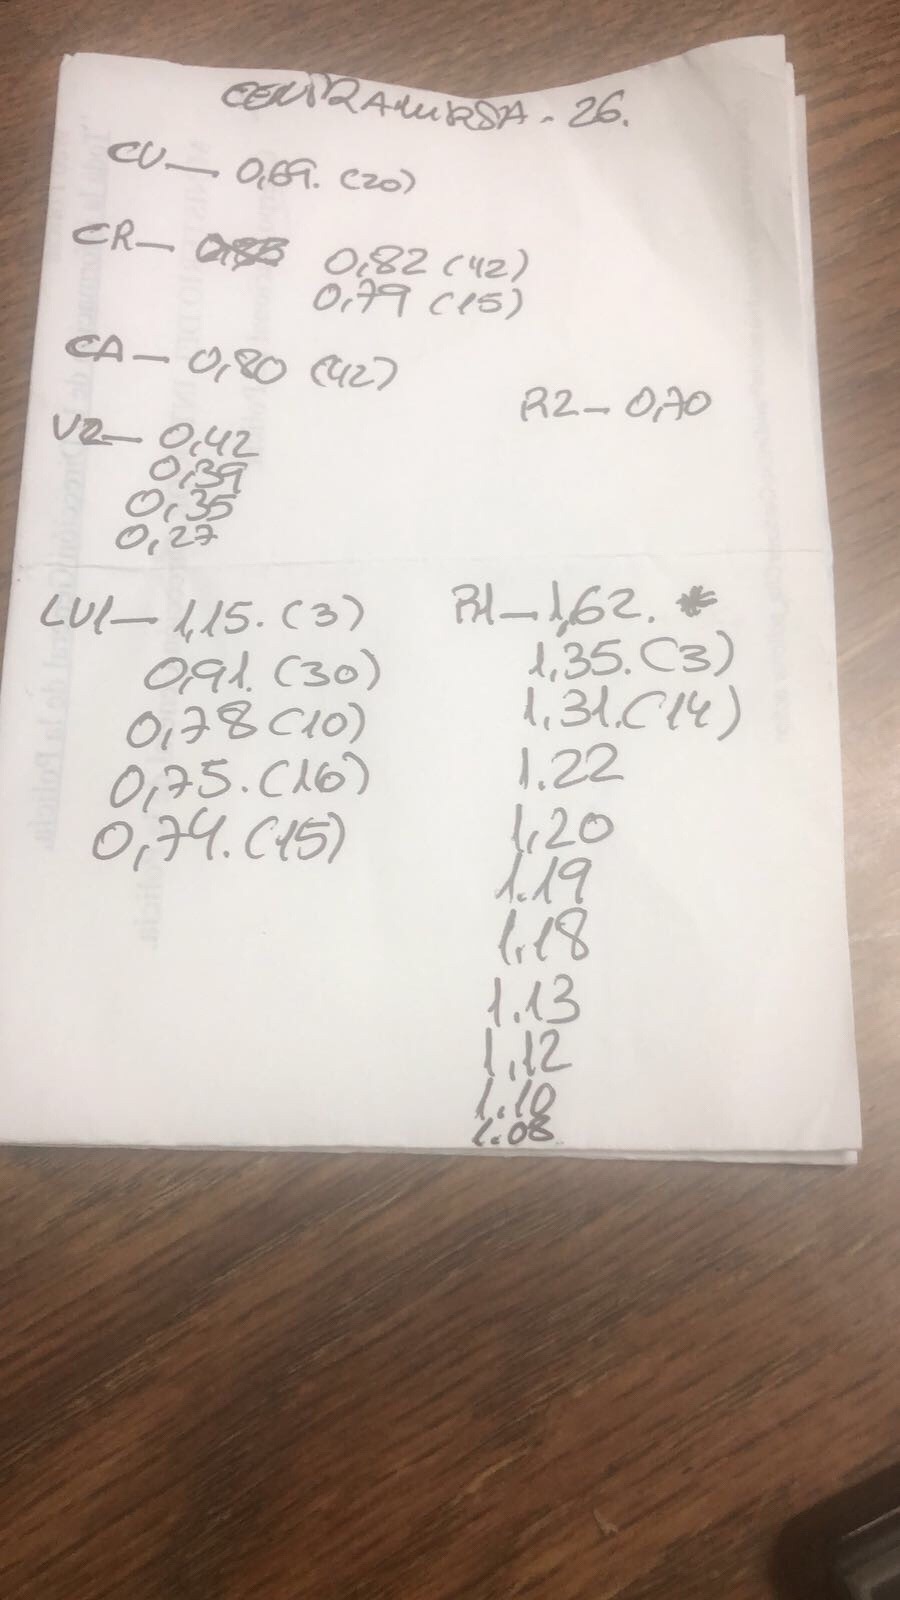 CENTRAMIRSA - 26.
CU — 0,69. (20)
CR — 0,82 (42)
0,79 (15)
CA — 0,80 (42)
R2 — 0,70
V2 — 0,42
0,39
0,35
0,27
LU1 — 1,15. (3)
0,91. (30)
0,78 (10)
0,75. (16)
0,74. (15)
R1 — 1,62. *
1,35. (3)
1,31. (14)
1.22
1,20
1.19
1.18
1.13
1,12
1.10
1.08